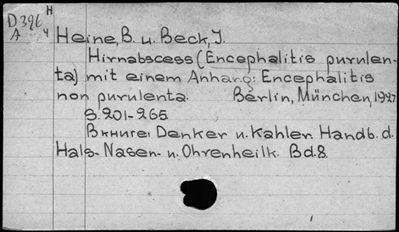 D396 H
A 4
Heine, B. u. Beck, J.
Hirnabscess (Encephalitis purulen-
ta) mit einem Anhang: Encephalitis
non purulenta. Berlin, München, 1927
S. 201-265
В книге: Denker u. Kahler. Handb. d.
Hals- Nasen- u. Ohrenheilk. Bd. 8.